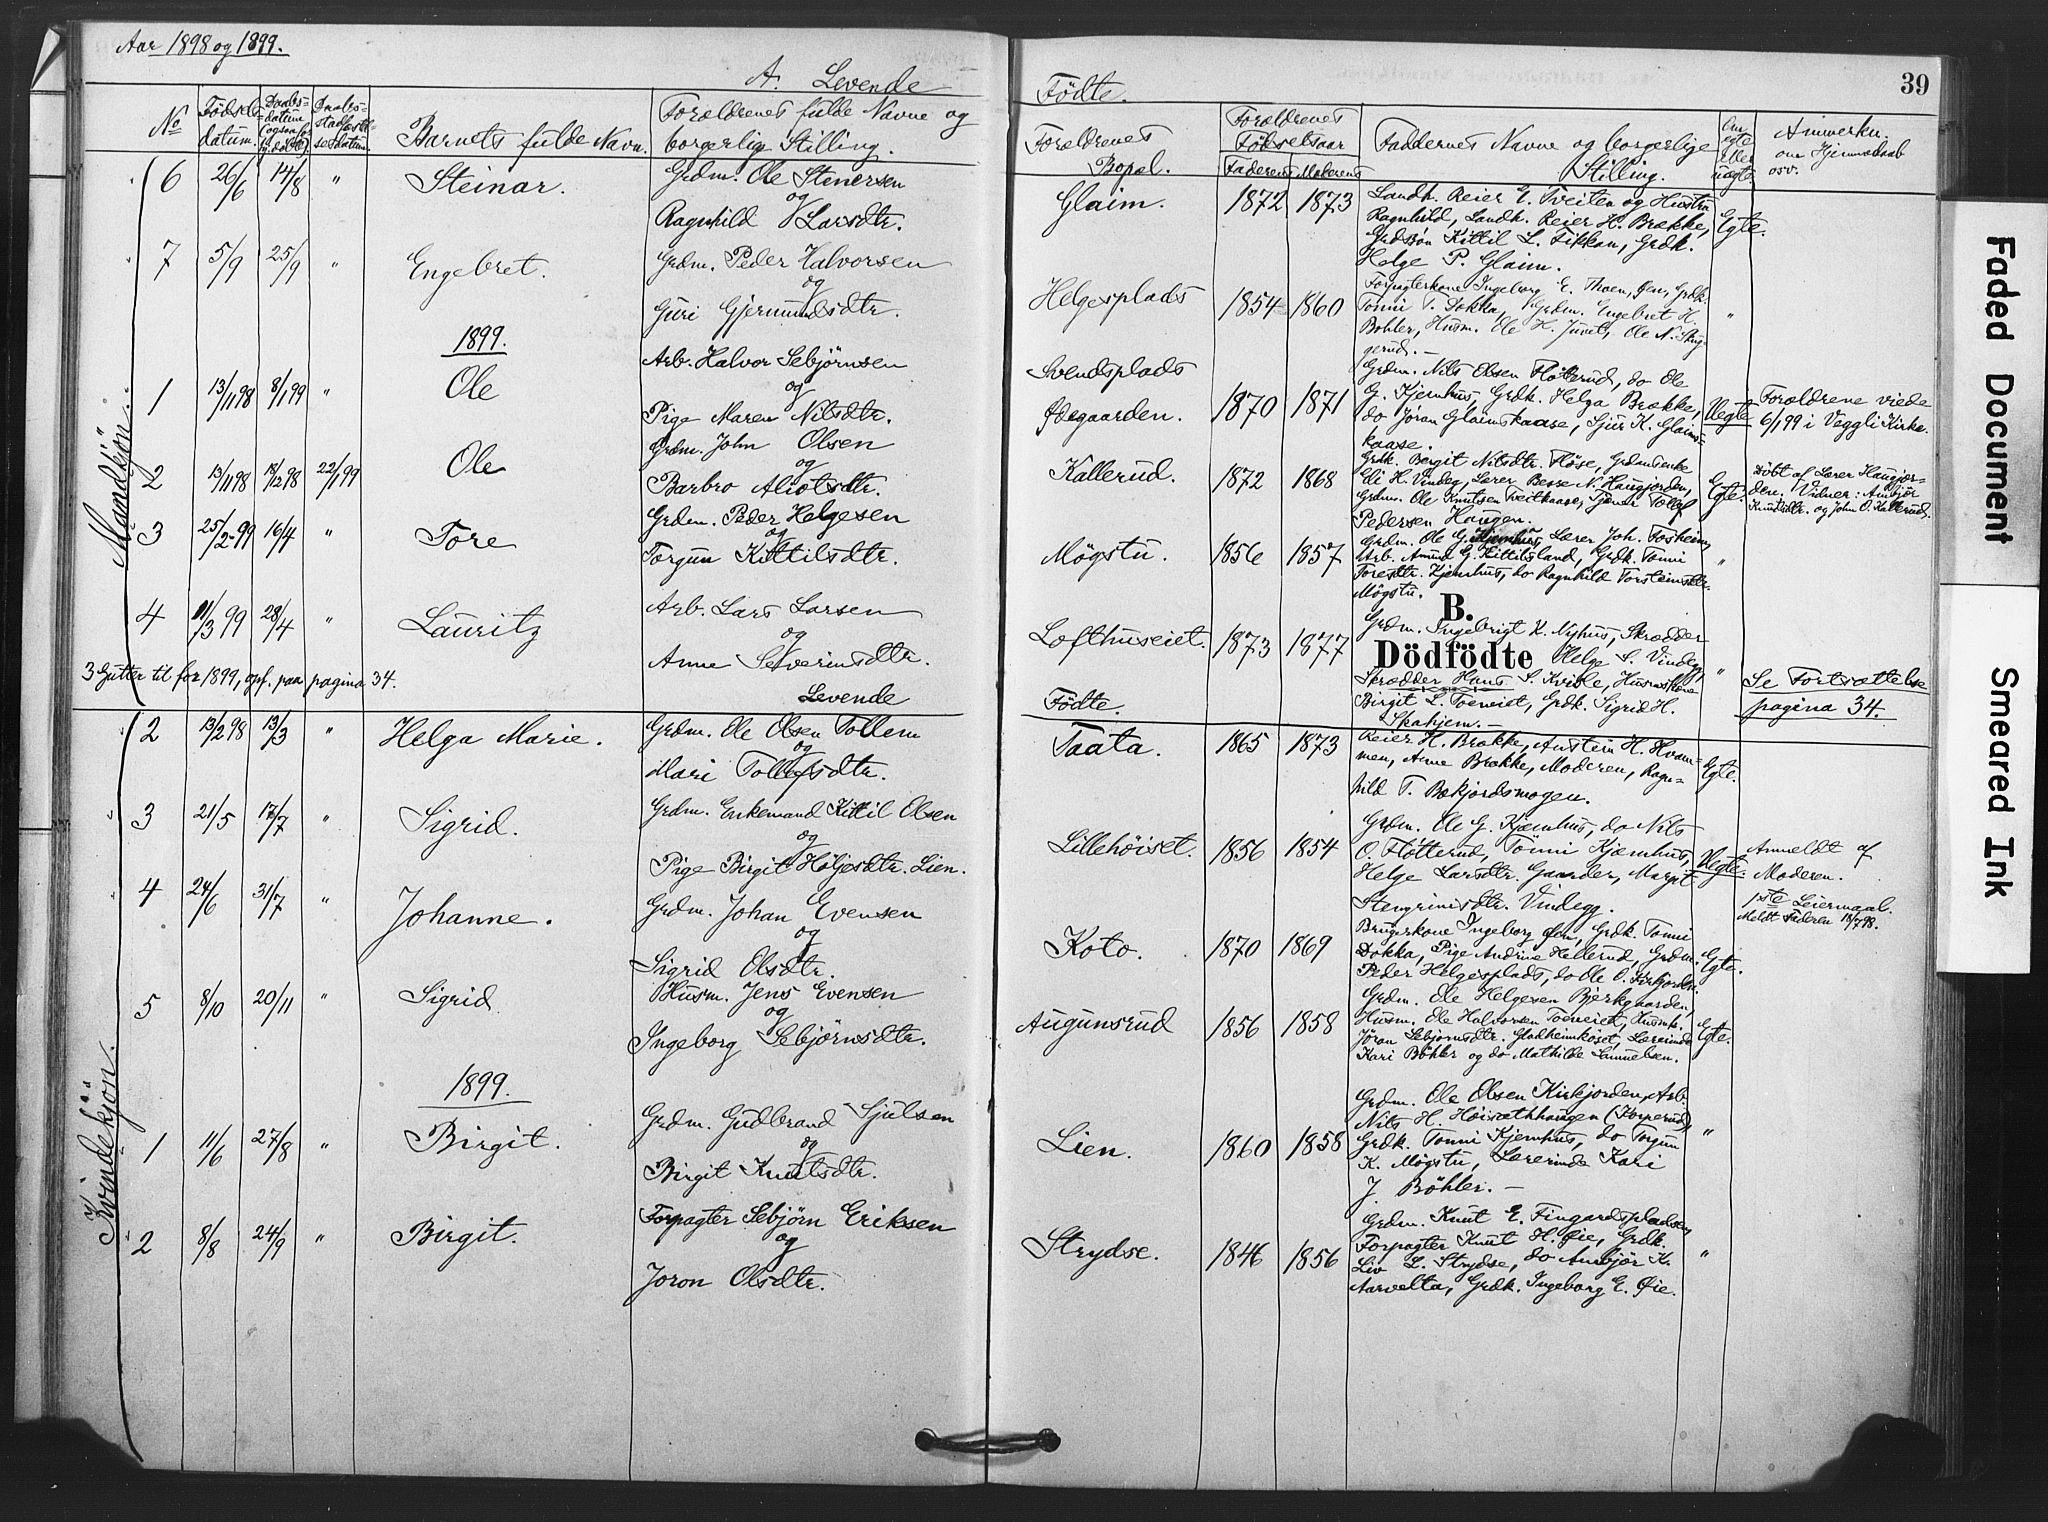 Aar 1898 og 1899.
A. Levende
Fødte.
39
No
Fødsels-
datum.
Daabs-
datum
Barnets fulde Navn.
Forældrenes fulde Navne og
borgerlig Stilling.
Forældrenes
Bopæl.
Forældrenes
Fødselsaar
Faderens Moderens
Faddernes Navne og borgerlige
Stilling.
Om
ægte
eller
uægte.
Anmerkn.
om Hjemmedaab
osv.
Mandkjön.
6 26/6 14/8 " Steinar. Grdm. Ole Stenersen
og
Ragnhild Larsdtr.
Glaim. 1872 1873 Ægte.
Landh. Reier E. Tveiten og Hustru
Ragnhild, Landh. Reier H. Brække,
Grdsøn Kittil L. Grdk.
Helge P. Glaim.
7 5/9 25/9 " Engebret. Grdm. Peder Halvorsen
og
Guri Gjermundsdtr.
Helgesplads 1854 1860 "
Forpagterkone Ingeborg E. Thoen, Øen, Grdk.
Tonni T. Dokka, Grdm. Engebret H.
Bøhler, Husm. Ole H. Juvet, Ole N. Skug-
gerud. —
1899.
1 13/11 98 8/1 99 " Ole Arb. Halvor Sebjørnsen
og
Pige Maren Nilsdtr.
Svendsplads
Ødegaarden. 1870 1871 Uegte
Grdm. Nils Olsen Fløtterud, do Ole
G. Kjemhus, Grdk. Helga Brække,
do Jøran Glaimskaase, Sjur K. Glaims-
kaase.
Forældrene viede
6/1 99 i Veggli Kirke.
2 13/11 98 18/12 98 22/1 99 Ole Grdm. John Olsen
og
Barbro Aliotsdtr.
Kallerud. 1872 1868 Ægte.
Grdk. Birgit Nilsdtr. Fløse, Grdmsenke
Eli H. Vindeg, Lærer Besse N. Haugjorden,
Grdm. Ole Knutsen Tveitkaase, Tjener Tollef
Pedersen Haugen.
Døbt af Lærer Haugjor-
den. Vidner: Ambjør
Knutsdtr. og John O. Kallerud.
3 25/2-99 16/4 " Tore Grdm. Peder Helgesen
og
Torgun Kittilsdtr.
Møgstu. 1856 1857 "
Grdm. Ole G. Kjemhus, Lærer Joh. Fosheim,
Arb. Amund G. Kittilsland, Grdk. Tonni
Toresdtr. Kjemhus, do Ragnhild Torsteinsdtr.
Møgstu.
4 11/3 99 28/4 " Lauritz Arb. Lars Larsen
og
Anne Severinsdtr.
Lofthuseiet. 1873 1877 "
B.
Dödfödte
Grdm. Ingebrigt K. Nyhus, Skrædder
Helge S. Vindegg,
Skrædder Hans S. Kvisle, Husmskone
Birgit L. Toeneiet, Grdk. Sigrid H.
Skahjem. —
Se Fortsættelse
pagina 34.
3 Gutter til for 1899, opf. paa pagina 34.
Levende
Fødte.
Kvindekjön.
2 13/2 98 13/3 " Helga Marie. Grdm. Ole Olsen Tollem
og
Mari Tollefsdtr.
Taata. 1865 1873 Ægte.
Reier H. Brække, Austein H. Hvam-
men, Anne Brække, Moderen, Ragn-
hild T. Bekjordsmogen.
3 21/5 17/7 " Sigrid. Grdm. Enkemand Kittil Olsen
og
Pige Birgit Høljesdtr. Lien.
Lillehöiset. 1856 1854 Uegte.
Grdm. Ole G. Kjemhus, do Nils
O. Fløtterud, Tönni Kjemhus,
Helge Larsdtr. Gaarder, Margit
Stengrimsdtr. Vindegg.
Anmeldt af
Moderen.
1ste Leiermaal.
Meldt Faderen 18/7 98.
4 24/6 31/7 " Johanne. Grdm. Johan Evensen
og
Sigrid Olsdtr.
Koto. 1870 1869 Ægte.
Brugerkone Ingeborg Øen, Grdk. Tonni
Dokka, Pige Andrine Hellerud, Grdm.
Peder Helgesplads, do Ole O. Kirkjorden.
5 8/10 20/11 " Sigrid Husm. Jens Evensen
og
Ingeborg Sebjörnsdtr.
Augunsrud 1856 1858 Ægte.
Grdm. Ole Helgesen Bjerkgaarden,
Husm. Ole Halvorsen Toeneiet, Husmk.
Jöran Sebjörnsdtr. Glaheimkøset, Lærerinde
Kari Bøhler og do Mathilde Samuelsen.
1899.
1 11/6 27/8 " Birgit. Grdm. Gudbrand Sjulsen
og
Birgit Knutsdtr.
Lien. 1860 1858 "
Grdm. Ole Olsen Kirkjorden, Arb.
Nils H. Høisæthhaugen (Korperud),
Grdk. Tonni Kjemhus, do Torgun
K. Møgstu, Lærerinde Kari
J. Bøhler. —
2 8/8 24/9 " Birgit. Forpagter Sebjörn Eriksen
og
Joron Olsdtr.
Strydse. 1846 1856 "
Grdm. Knut E. Fingardspladsen,
Forpagter Knut H. Øie, Grdk.
Liv L. Strydse, do Ambjør K.
Aarvelta, Grdk. Ingeborg E. Øie.
Faded Document
Smeared Ink